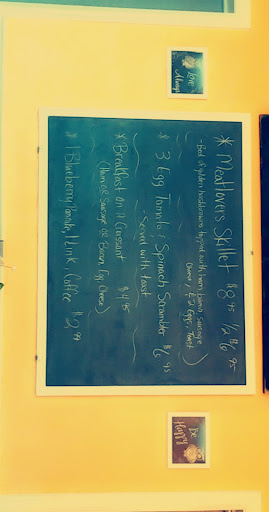 Love
Always
* Meatlovers Skillet $8.45 1/2 $6.95
- Bed of golden hashbrowns topped with ham, bacon, sausage
cheese, & 2 Eggs, Toast
* 3 Egg Tomato, Spinach Scrambler $6.95
- Served with Toast
* Breakfast on A Croissant $4.95
(Ham OR Sausage OR Bacon, Egg, Cheese)
* 1 Blueberry Pancake, 1 Link, Coffee $2.99
Be
Happy